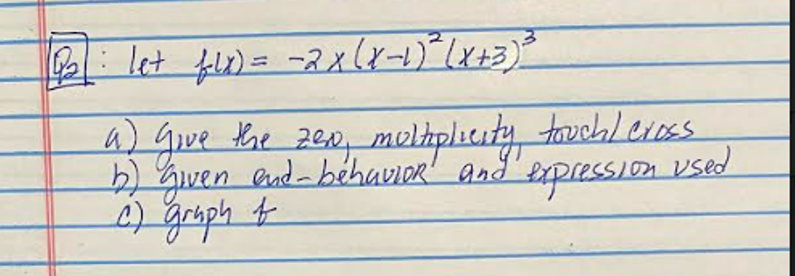 Q2: let f(x) = -2x(x-1)²(x+3)³
a) Give the zero, moltiplicity, touch/cross
b) Given end-behavior and expression used
c) graph f